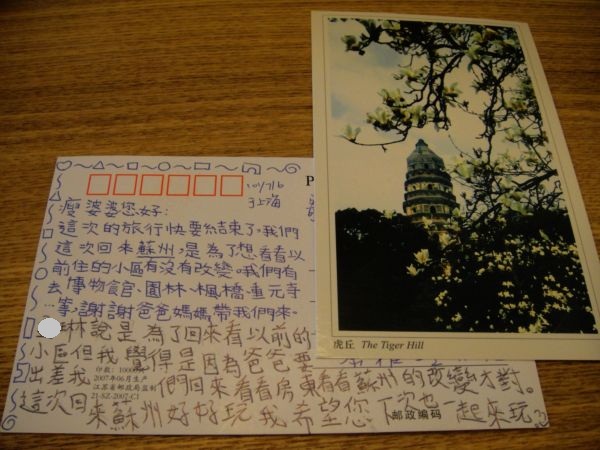 10/7/6
于上海
瘦婆婆您好:
這次的旅行快要結束了。我們
這次回來蘇州,是為了想看看以
前住的小區有沒有改變。我們有
去博物館、園林、楓橋、重元寺
…等,謝謝爸爸媽媽帶我們來。
林說是為了回來看以前的
小區但我覺得是因為爸爸要
出差我們回來看看房東看看蘇州的改變才對。
這次回來蘇州好好玩我希望您下次也一起來玩。
印数:10000
2007年06月生产
江苏省邮政局监制
21-SZ-2007-C1
邮政编码
P
虎丘 The Tiger Hill